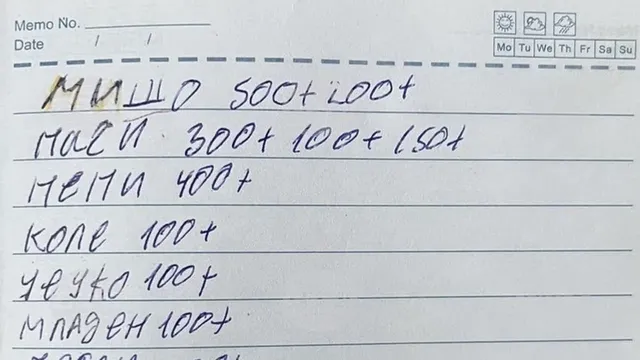 Memo No.
Date / /
Mo Tu We Th Fr Sa Su
МИШО 500+ 200+
НАСЙ 300+ 100+ 150+
ПЕПИ 400+
КОЛЕ 100+
100+
МЛАДЕН 100+